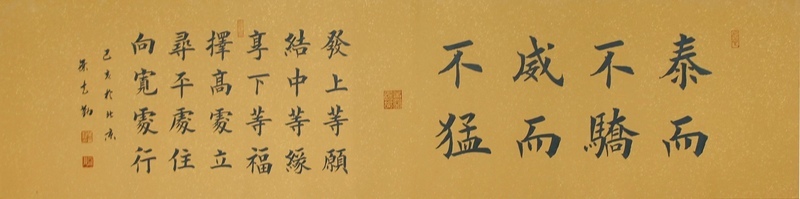 泰而
不驕
威而
不猛
發上等願
結中等緣
享下等福
擇高處立
尋平處住
向寬處行
己亥於北京